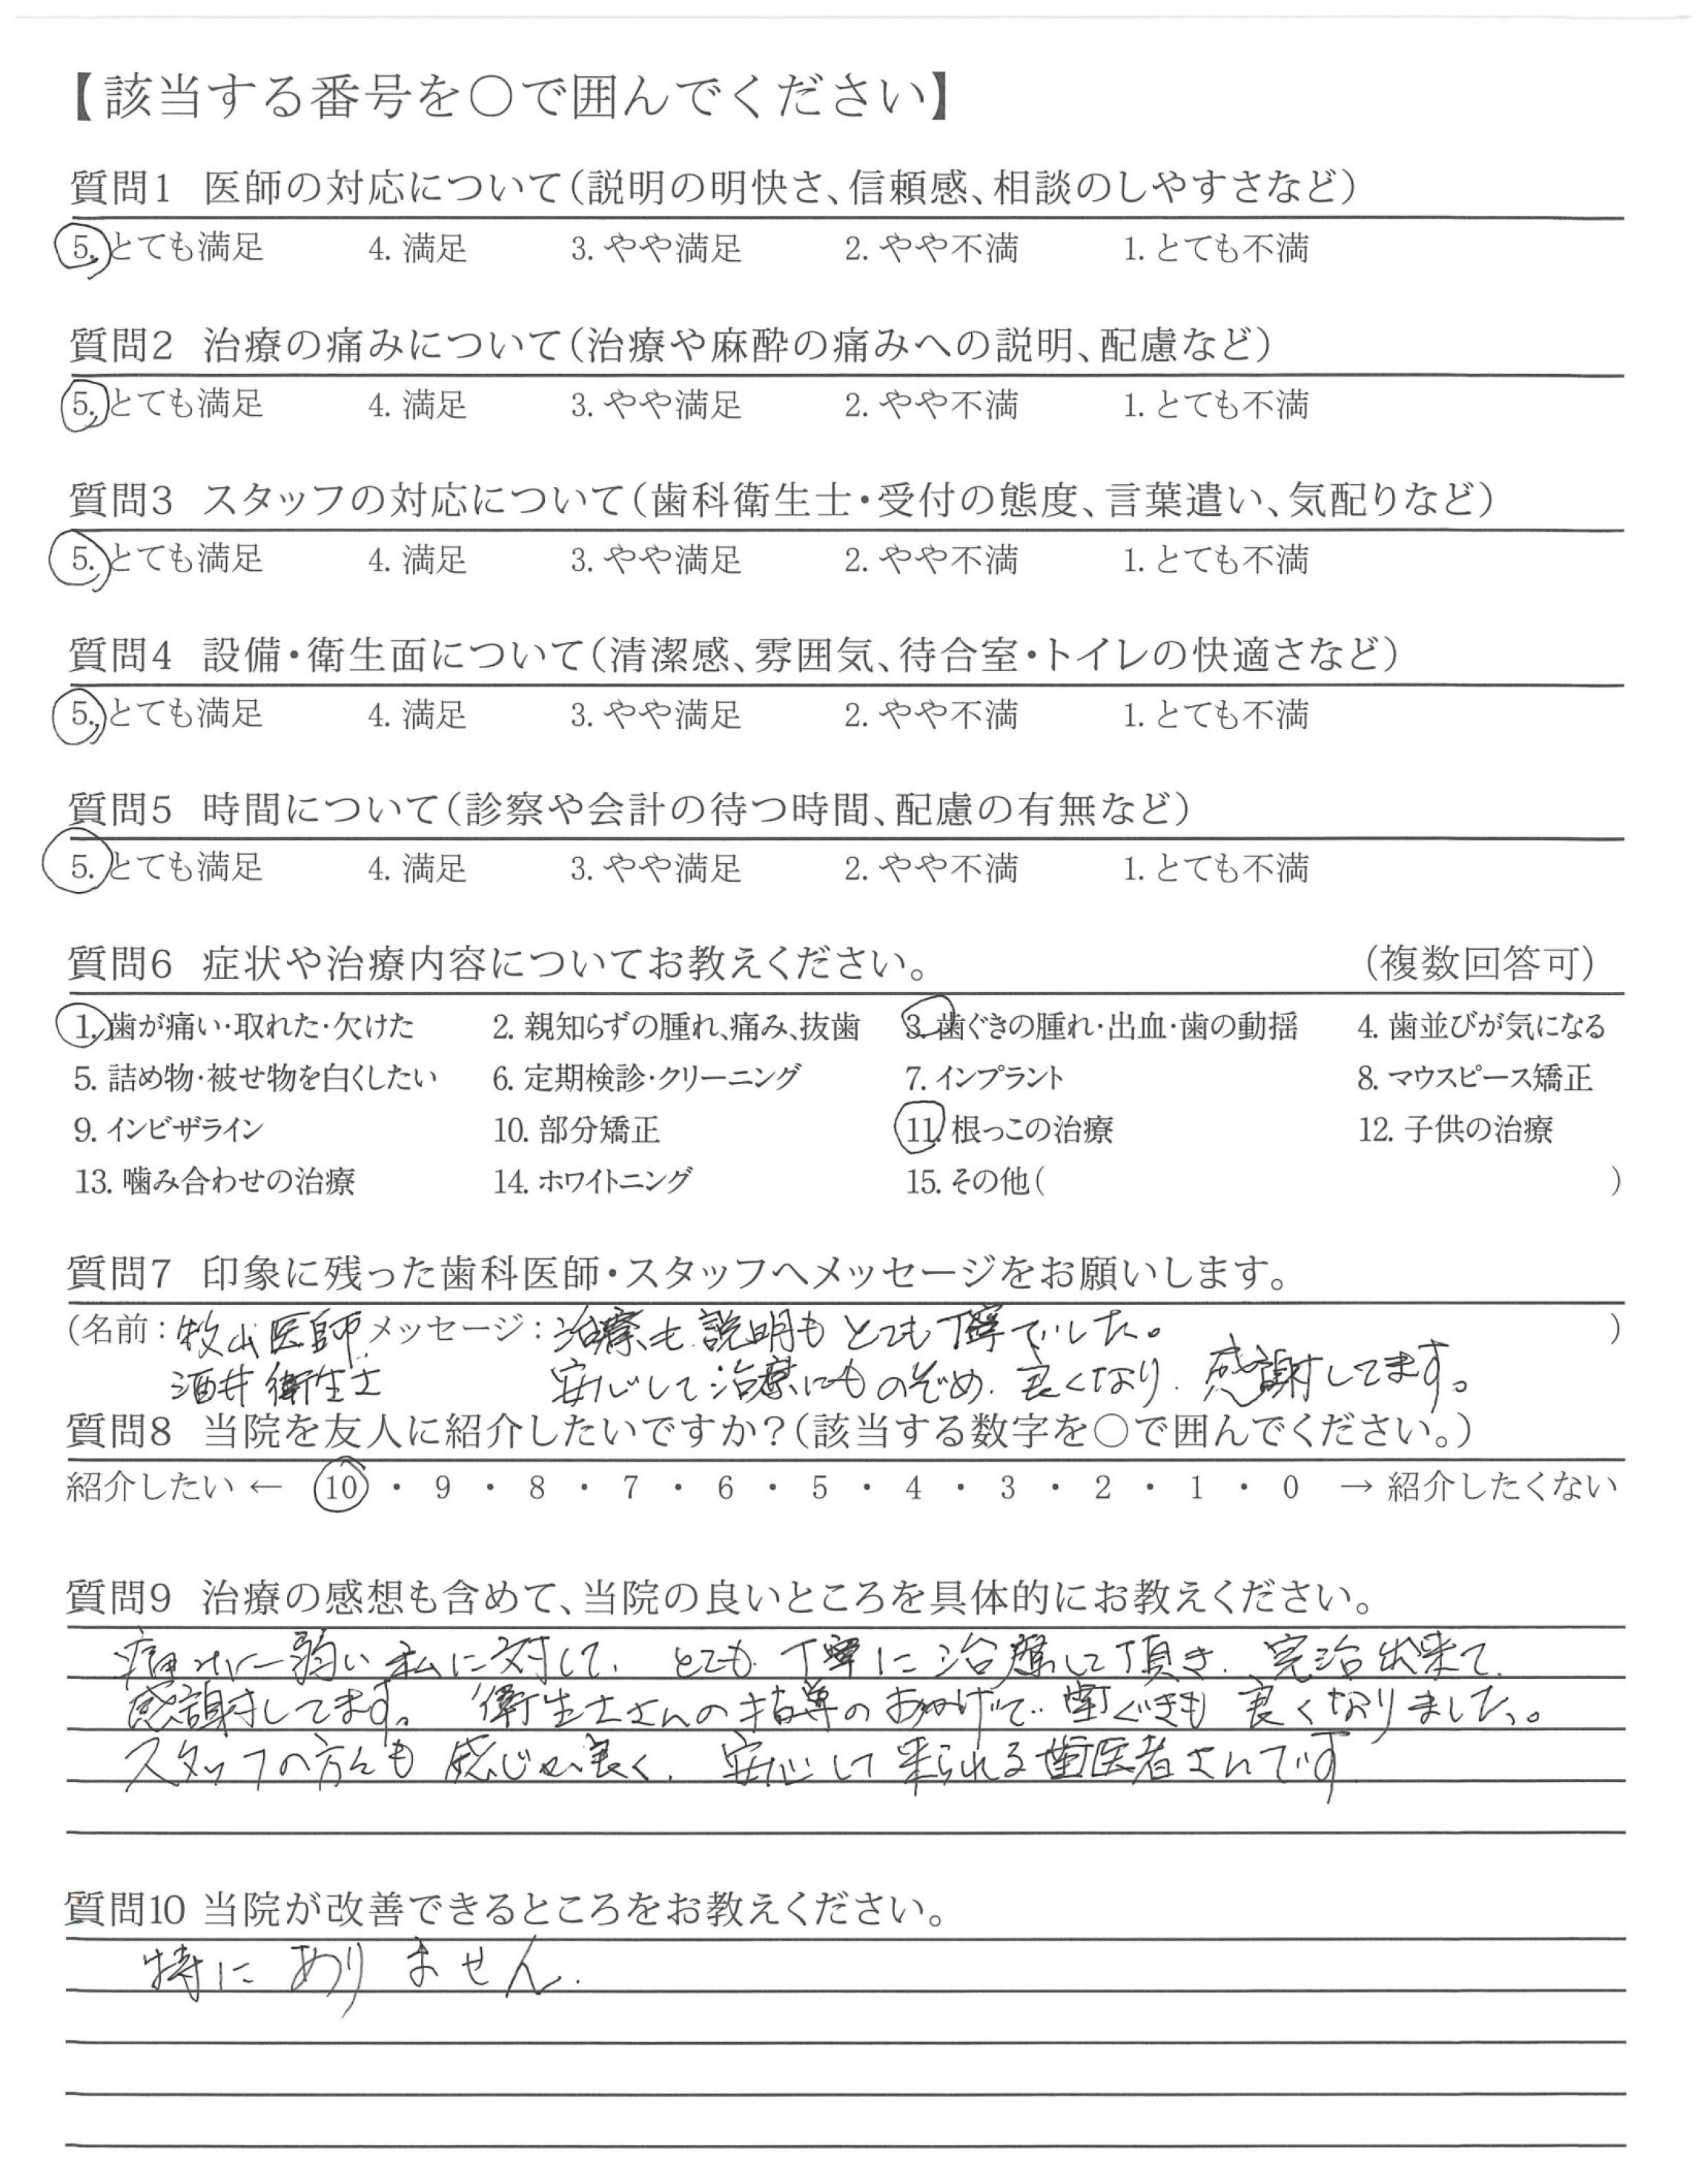 【該当する番号を○で囲んでください】
質問1 医師の対応について(説明の明快さ、信頼感、相談のしやすさなど)
5. とても満足 4. 満足 3. やや満足 2. やや不満 1. とても不満
質問2 治療の痛みについて(治療や麻酔の痛みへの説明、配慮など)
5. とても満足 4. 満足 3. やや満足 2. やや不満 1. とても不満
質問3 スタッフの対応について(歯科衛生士・受付の態度、言葉遣い、気配りなど)
5. とても満足 4. 満足 3. やや満足 2. やや不満 1. とても不満
質問4 設備・衛生面について(清潔感、雰囲気、待合室・トイレの快適さなど)
5. とても満足 4. 満足 3. やや満足 2. やや不満 1. とても不満
質問5 時間について(診察や会計の待つ時間、配慮の有無など)
5. とても満足 4. 満足 3. やや満足 2. やや不満 1. とても不満
質問6 症状や治療内容についてお教えください。 (複数回答可)
1. 歯が痛い・取れた・欠けた 2. 親知らずの腫れ、痛み、抜歯 3. 歯ぐきの腫れ・出血・歯の動揺 4. 歯並びが気になる
5. 詰め物・被せ物を白くしたい 6. 定期検診・クリーニング 7. インプラント 8. マウスピース矯正
9. インビザライン 10. 部分矯正 11. 根っこの治療 12. 子供の治療
13. 噛み合わせの治療 14. ホワイトニング 15. その他( )
質問7 印象に残った歯科医師・スタッフへメッセージをお願いします。
(名前:牧山医師 メッセージ:治療も説明もとても丁寧でした。 )
酒井衛生士 安心して治療にものぞめ、良くなり、感謝してます。
質問8 当院を友人に紹介したいですか?(該当する数字を○で囲んでください。)
紹介したい ← 10 ・ 9 ・ 8 ・ 7 ・ 6 ・ 5 ・ 4 ・ 3 ・ 2 ・ 1 ・ 0 → 紹介したくない
質問9 治療の感想も含めて、当院の良いところを具体的にお教えください。
痛みに弱い私に対して、とても丁寧に治療して頂き、完治出来て、
感謝してます。衛生士さんの指導のおかげで歯ぐきも良くなりました。
スタッフの方々も感じが良く、安心して来られる歯医者さんです
質問10 当院が改善できるところをお教えください。
特にありません.